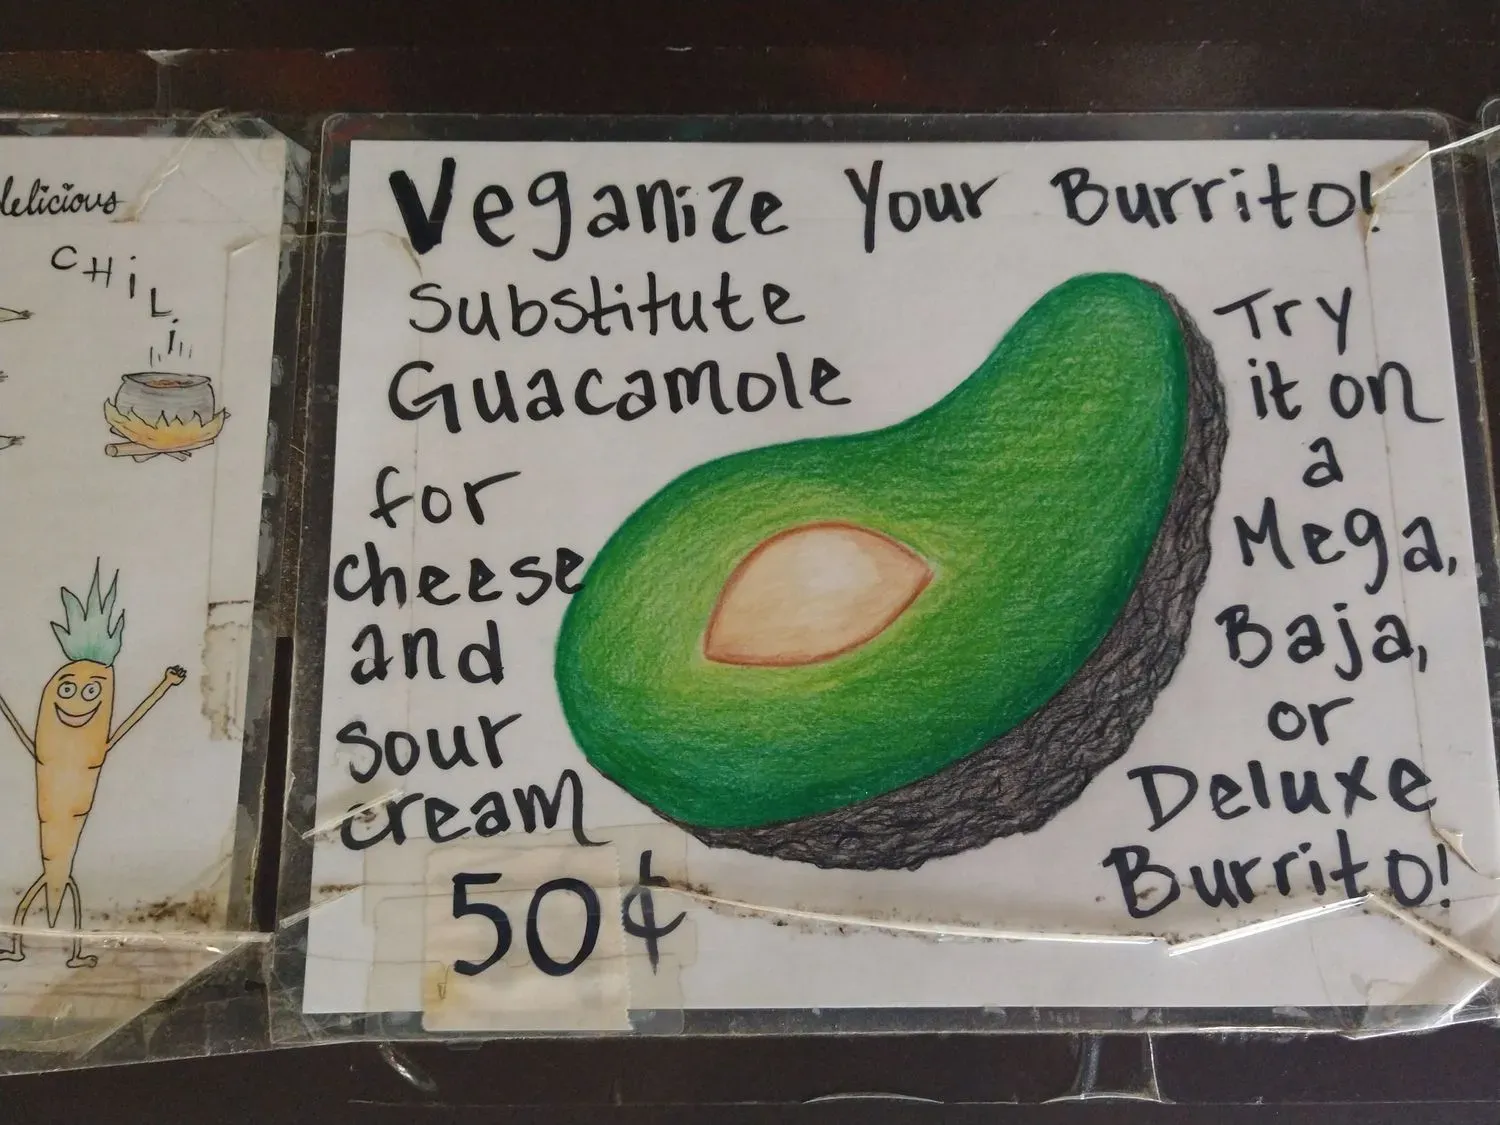 delicious
CHiLi
Veganize Your Burrito!
Substitute
Guacamole
for
cheese
and
sour
cream
50¢
Try
it on
a
Mega,
Baja,
or
Deluxe
Burrito!